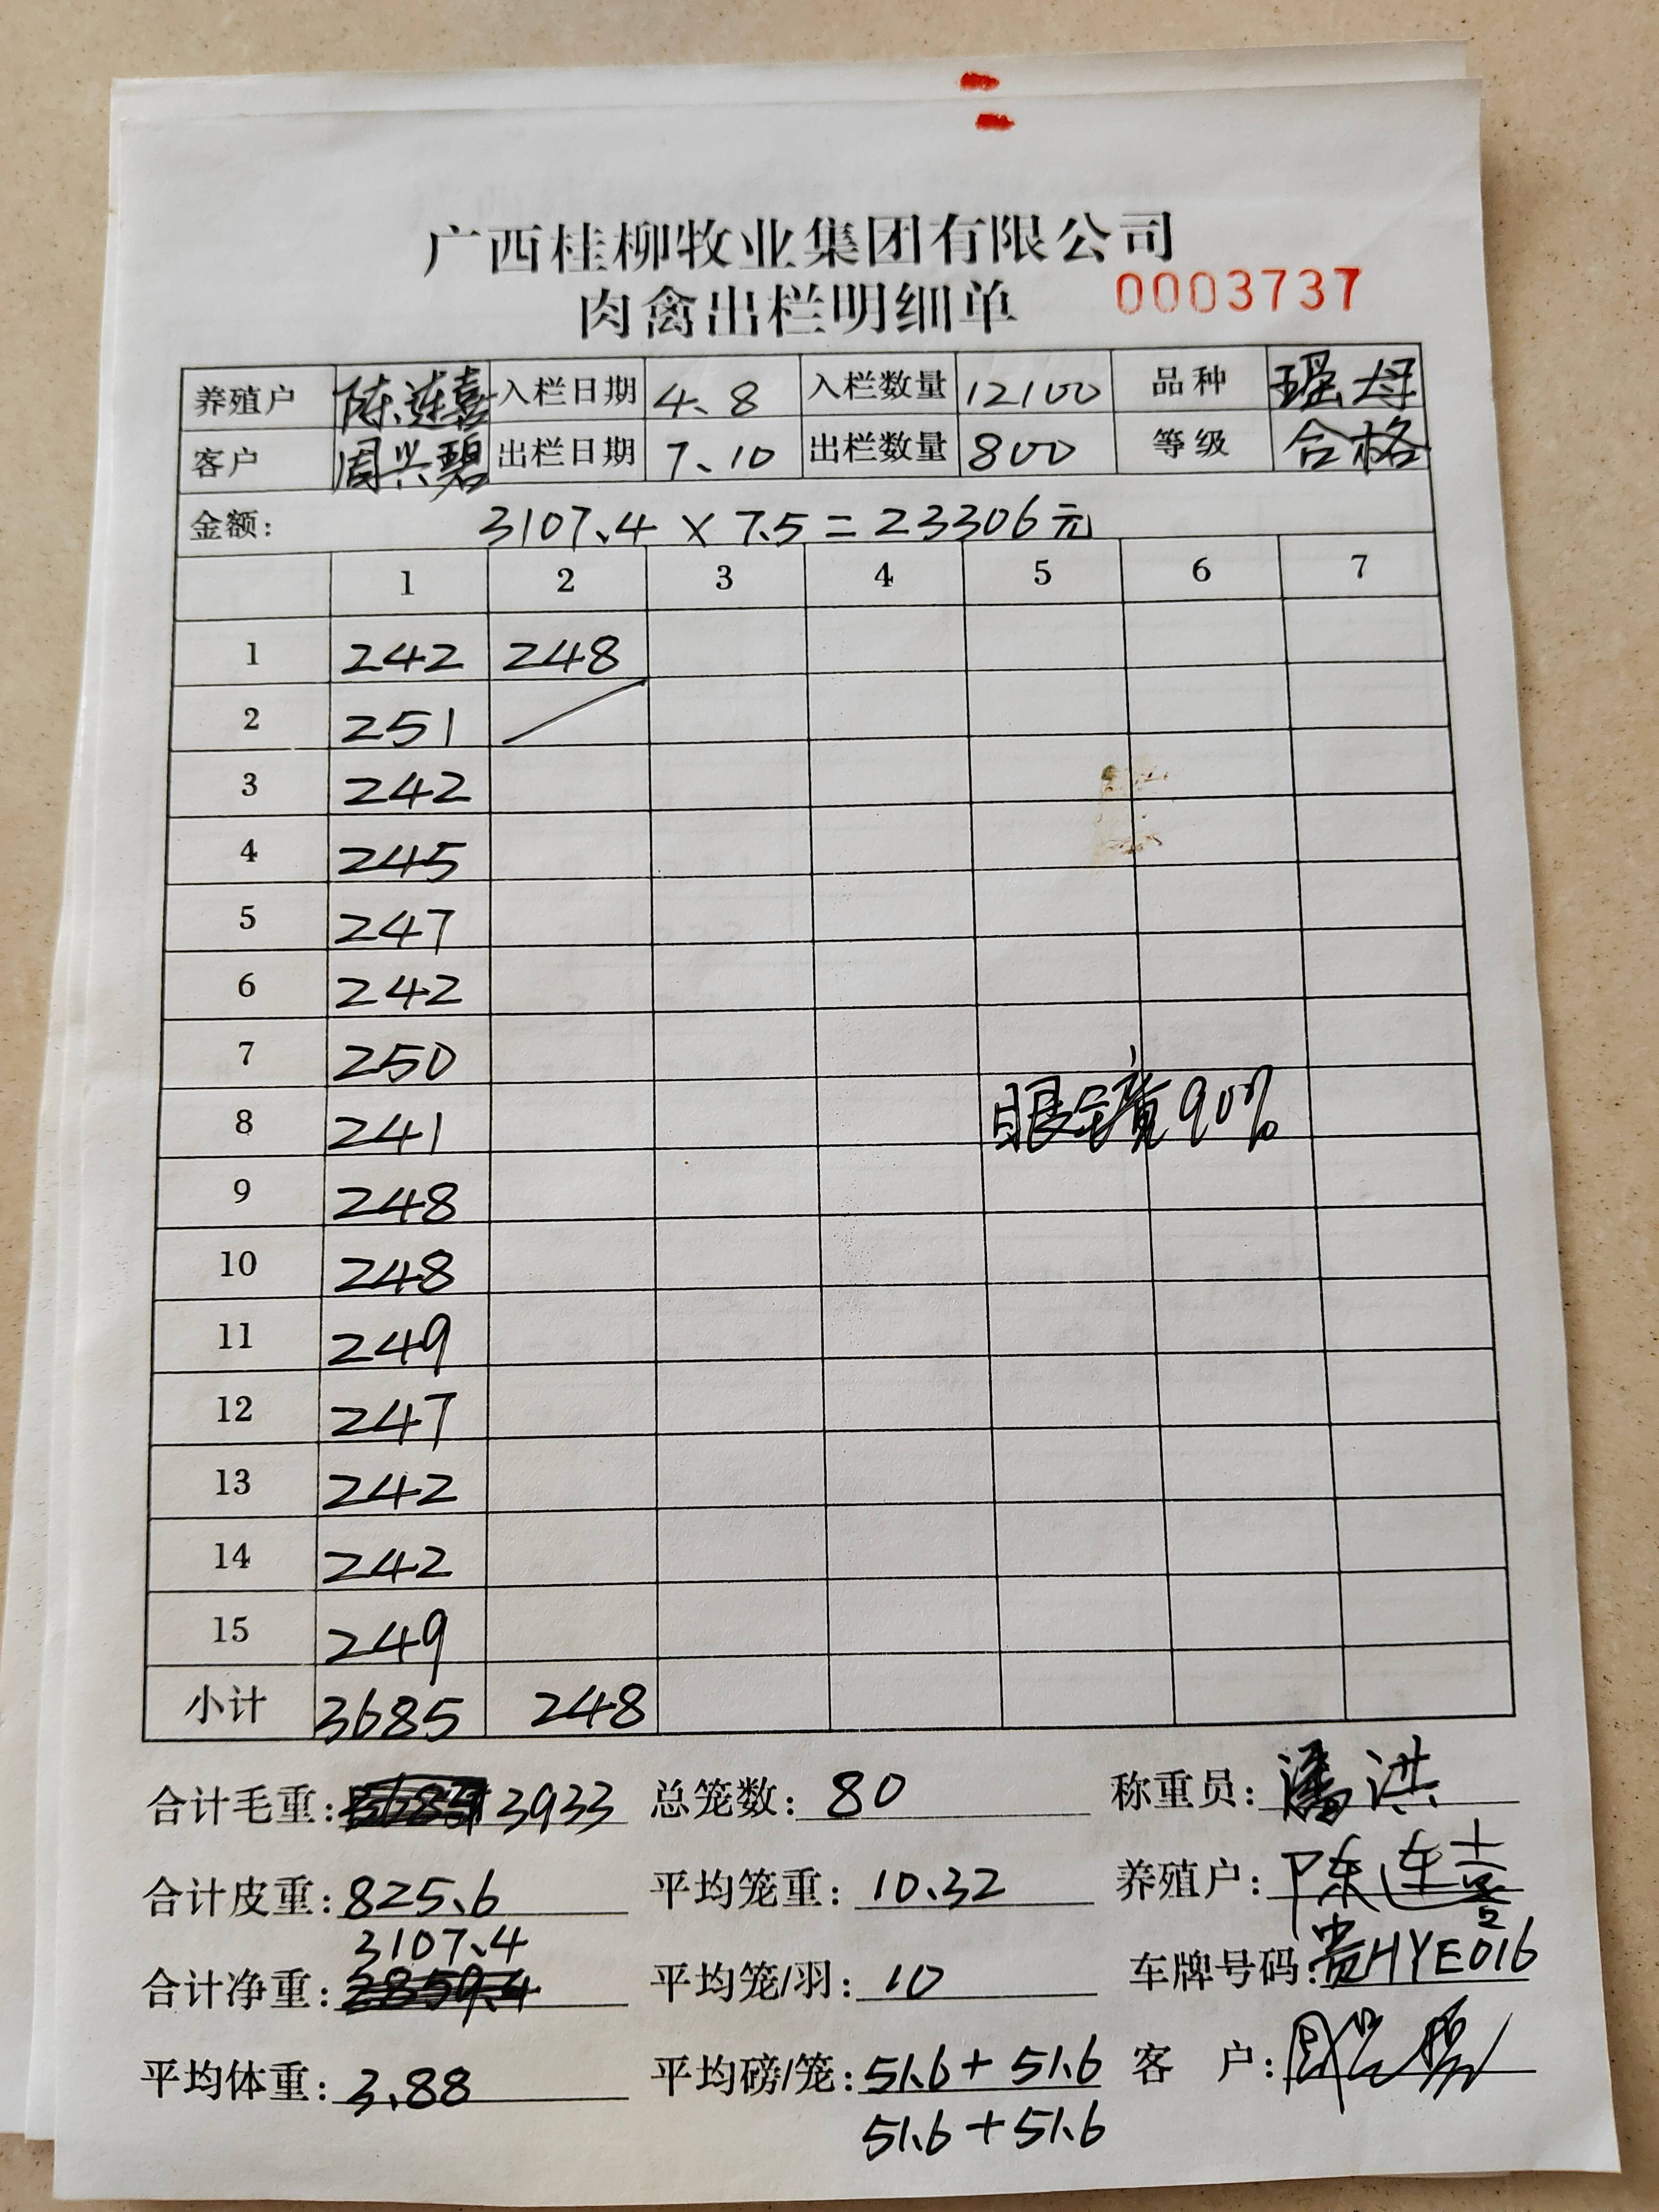 广西桂柳牧业集团有限公司
肉禽出栏明细单 0003737
养殖户 陈连喜 入栏日期 4.8 入栏数量 12100 品种 瑶母
客户 周兴碧 出栏日期 7.10 出栏数量 800 等级 合格
金额: 3107.4 × 7.5 = 23306元
1 2 3 4 5 6 7
1 242 248
2 251
3 242
4 245
5 247
6 242
7 250
8 241 眼镜90%
9 248
10 248
11 249
12 247
13 242
14 242
15 249
小计 3685 248
合计毛重: 3933 总笼数: 80 称重员: 潘洪
合计皮重: 825.6 平均笼重: 10.32 养殖户: 陈连喜
3107.4
合计净重: 2859.4 平均笼/羽: 10 车牌号码: 贵HYE016
平均体重: 3.88 平均磅/笼: 51.6 + 51.6 客 户:
51.6 + 51.6